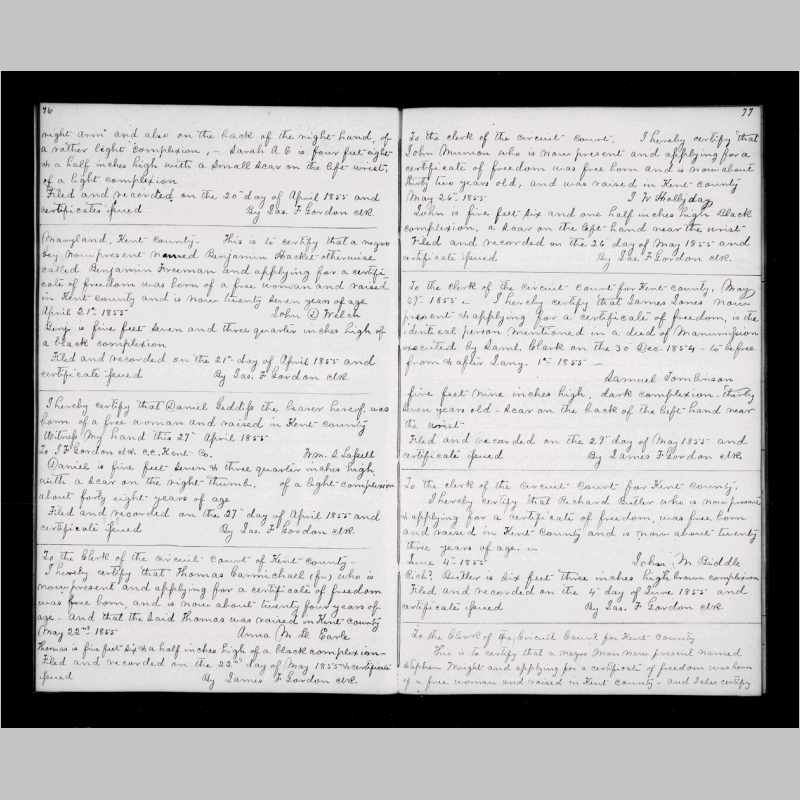 76
right arm and also on the back of the right hand, of
a rather light complexion, - Sarah A C is four feet eight
& a half inches high with a small scar on the left wrist,
of a light complexion
Filed and recorded on the 20th day of April 1855 and
certificates issued By Jas. F. Gordon clk.
Maryland, Kent County. This is to certify that a negro
boy now present named Benjamin Hacket otherwise
called Benjamin Freeman and applying for a certifi
cate of freedom was born of a free woman and raised
in Kent county and is now twenty seven years of age
April 21st 1855 John Welch
Benj. is five feet seven and three quarter inches high of
a black complexion
Filed and recorded on the 21st day of April 1855 and
certificate issued By Jas. F. Gordon clk
I hereby certify that Daniel the bearer hereof, was
born of a free woman and raised in Kent county
Witness my hand this 27th April 1855
To J F Gordon clk. c.c. Kent Co. Wm. S. Lassell
Daniel is five feet seven & three quarter inches high
with a scar on the right thumb. of a light complexion
about forty eight years of age
Filed and recorded on the 27th day of April 1855 and
certificate issued By Jas. F. Gordon clk.
To the Clerk of the circuit court of Kent county -
I hereby certify that Thomas Carmichael (fn) who is
now present and applying for a certificate of freedom
was free born, and is now about twenty four years of
age - And that the said Thomas was raised in Kent county
May 22nd 1855 Anna M. De Earle
Thomas is five feet six & a half inches high of a black complexion -
Filed and recorded on the 22nd day of May 1855 & certificate
issued By James F Gordon clk.
77
To the clerk of the circuit court. I hereby certify that
John Munson who is now present and applying for a
certificate of freedom was free born and is now about
thirty two years old, and was raised in Kent county
May 26th 1855 J W Hollyday
John is five feet six and one half inches high Black
complexion, a scar on the left hand near the wrist
Filed and recorded on the 26 day of May 1855 and
certificate issued By Jas. F. Gordon clk.
To the clerk of the circuit court for Kent county. May
29th 1855 - I hereby certify that James Jones now
present & applying for a certificate of freedom, is the
identical person mentioned in a deed of Manumission
executed by Saml. Clark on the 30 Dec. 1854 - to be free
from & after Jany. 1st 1855 -
Samuel Tomlinson
five feet nine inches high, dark complexion. thirty
seven years old - scar on the back of the left hand near
the wrist
Filed and recorded on the 29th day of May 1855 and
certificate issued By James F. Gordon clk.
To the clerk of the circuit court for Kent county.
I hereby certify that Richard Butler who is now present
& applying for a certificate of freedom, was free born
and raised in Kent County and is now about twenty
three years of age.
June 4th 1855 John M. Biddle
Richd. Butler is six feet three inches high brown complexion
Filed and recorded on the 4th day of June 1855 and
certificate issued By Jas. F Gordon clk.
To the Clerk of the Circuit Court for Kent County
This is to certify that a negro Man now present named
Stephen Wright and applying for a certificate of freedom was born
of a free woman and raised in Kent County - and I also certify